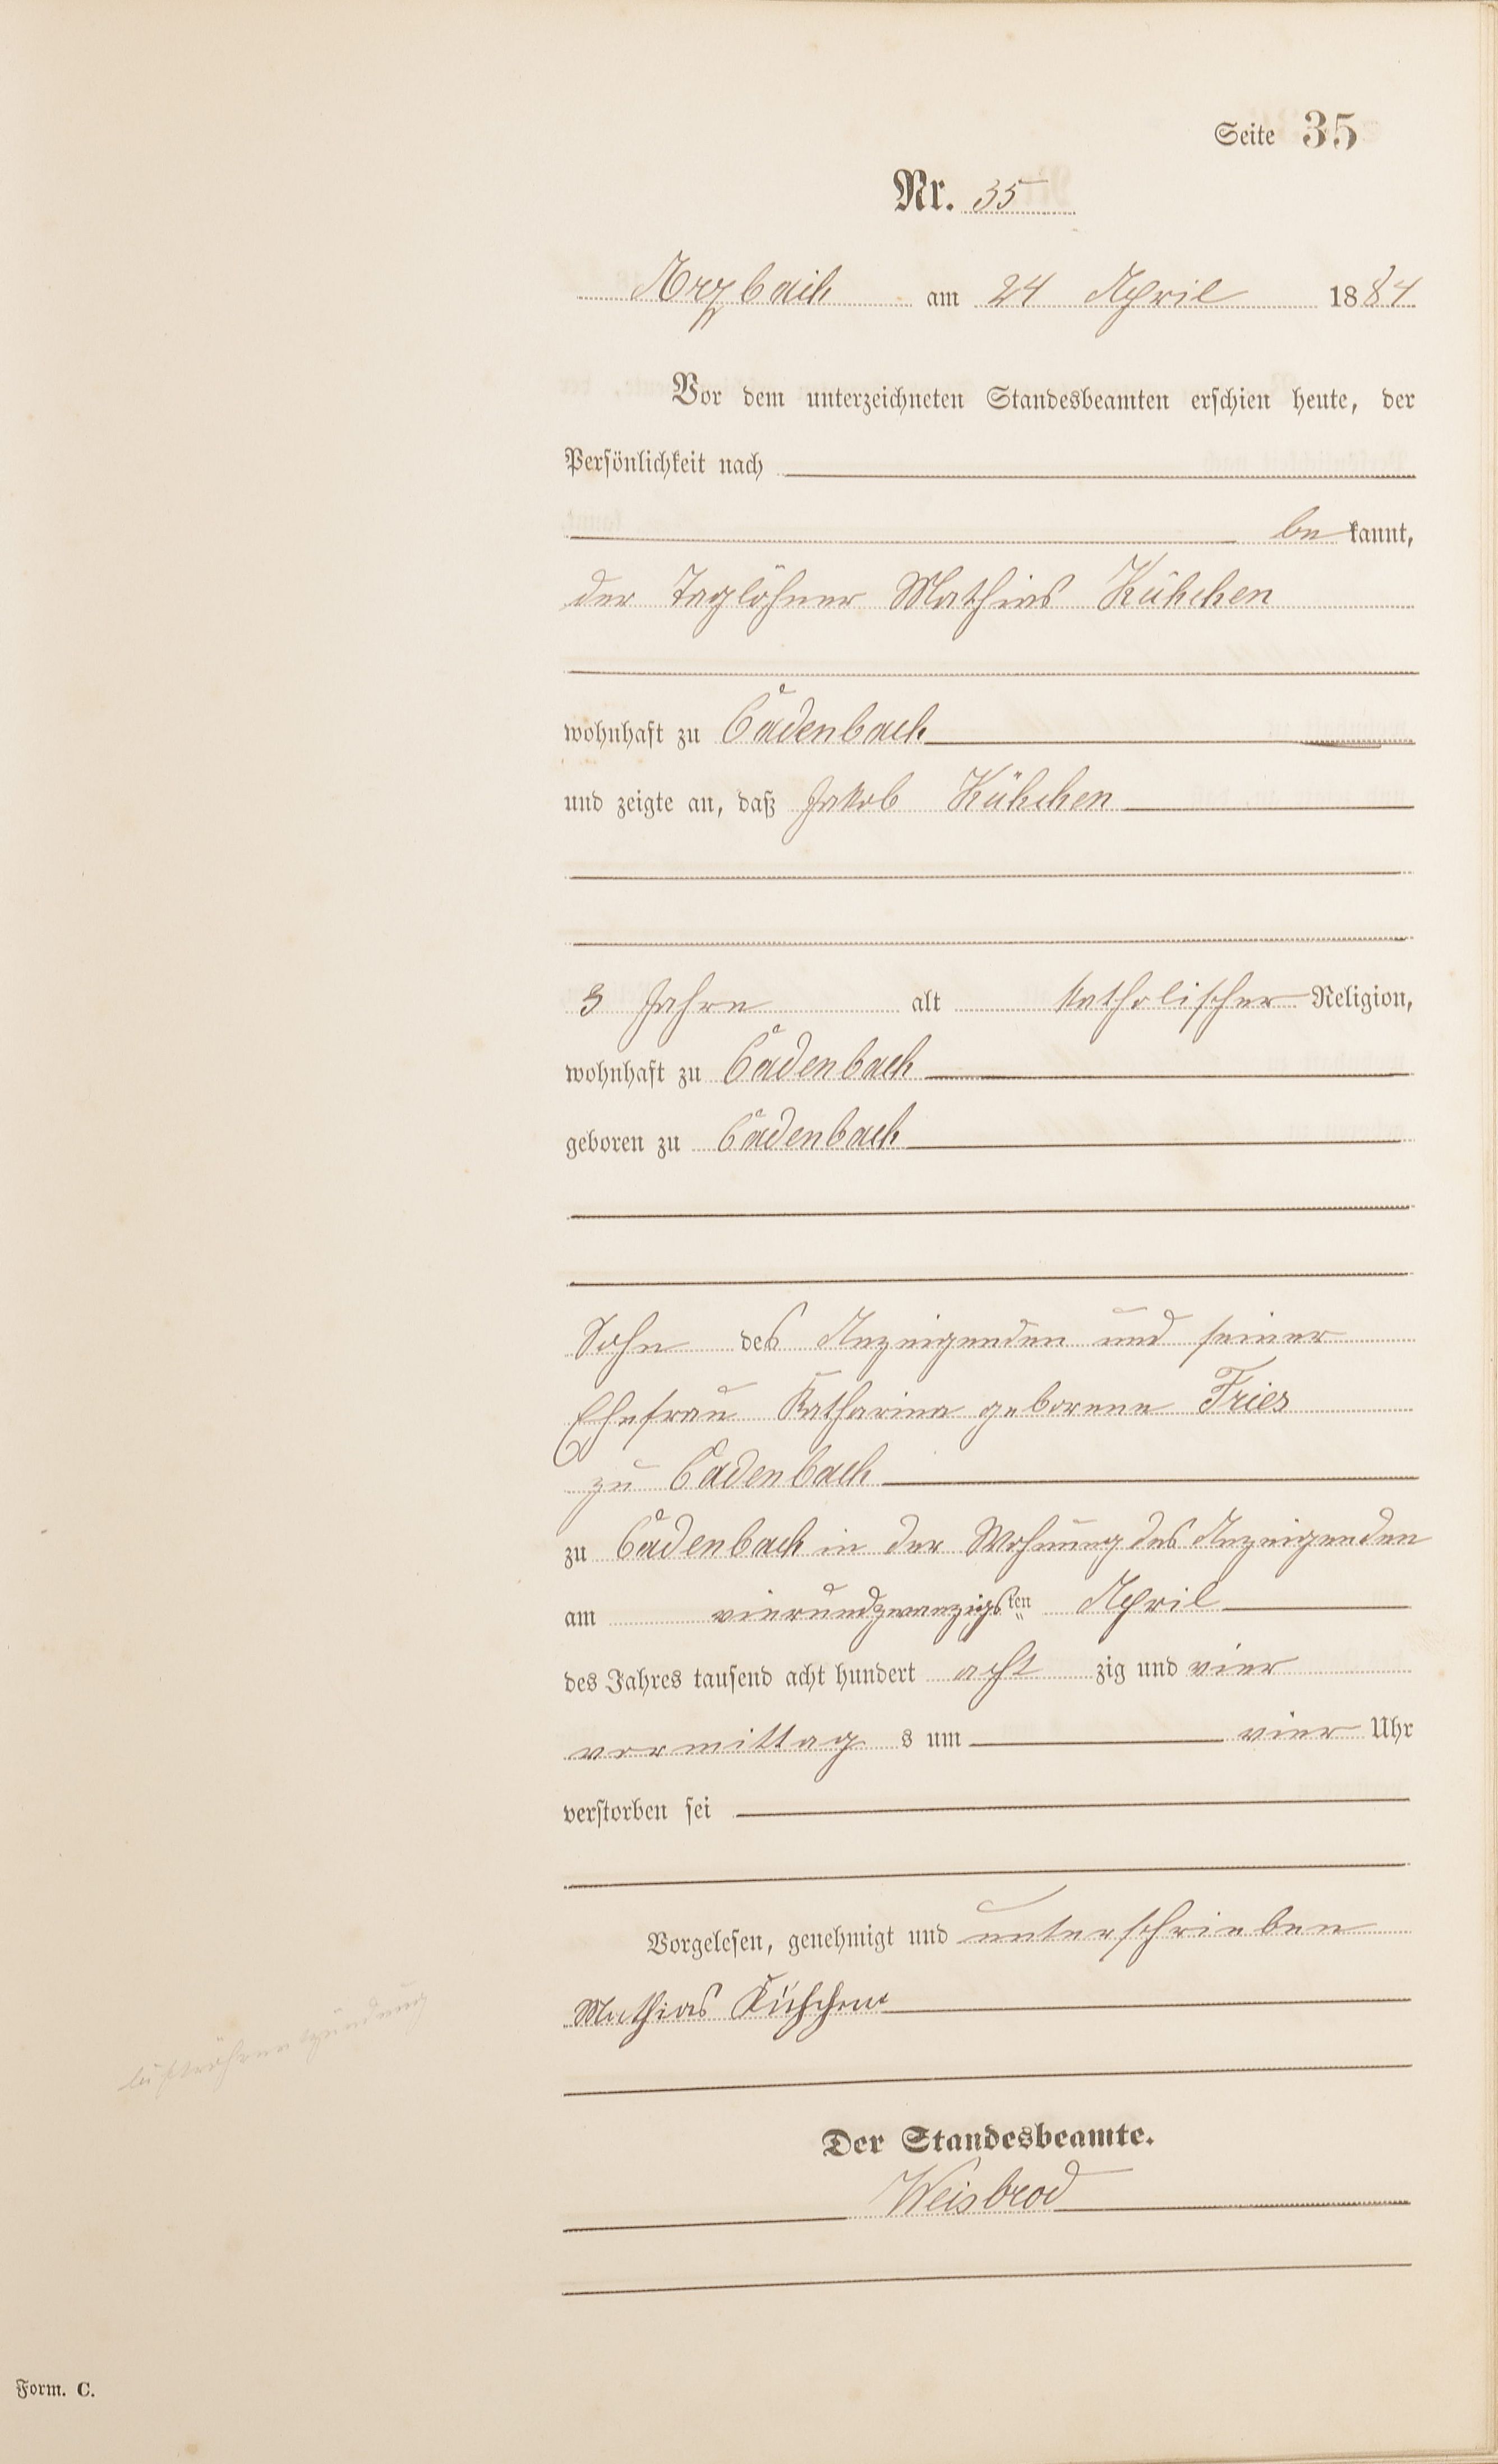 Seite 35
Nr. 35
Arzbach am 24 April 1884
Vor dem unterzeichneten Standesbeamten erschien heute, der
Persönlichkeit nach
be kannt,
der Taglöhner Mathias Kühchen
wohnhaft zu Cadenbach
und zeigte an, daß Jakob Kühchen
3 Jahre alt katholischer Religion,
wohnhaft zu Cadenbach
geboren zu Cadenbach
Sohn des Anzeigenden und seiner
Ehefrau Katharina geborene Fries
zu Cadenbach
zu Cadenbach in der Wohnung des Anzeigenden
am vierundzwanzigsten April
des Jahres tausend acht hundert acht zig und vier
vormittag s um vier Uhr
verstorben sei
Vorgelesen, genehmigt und unterschrieben
Mathias Kühchen
Luftröhrenentzündung
Der Standesbeamte.
Weisbrod
Form. C.